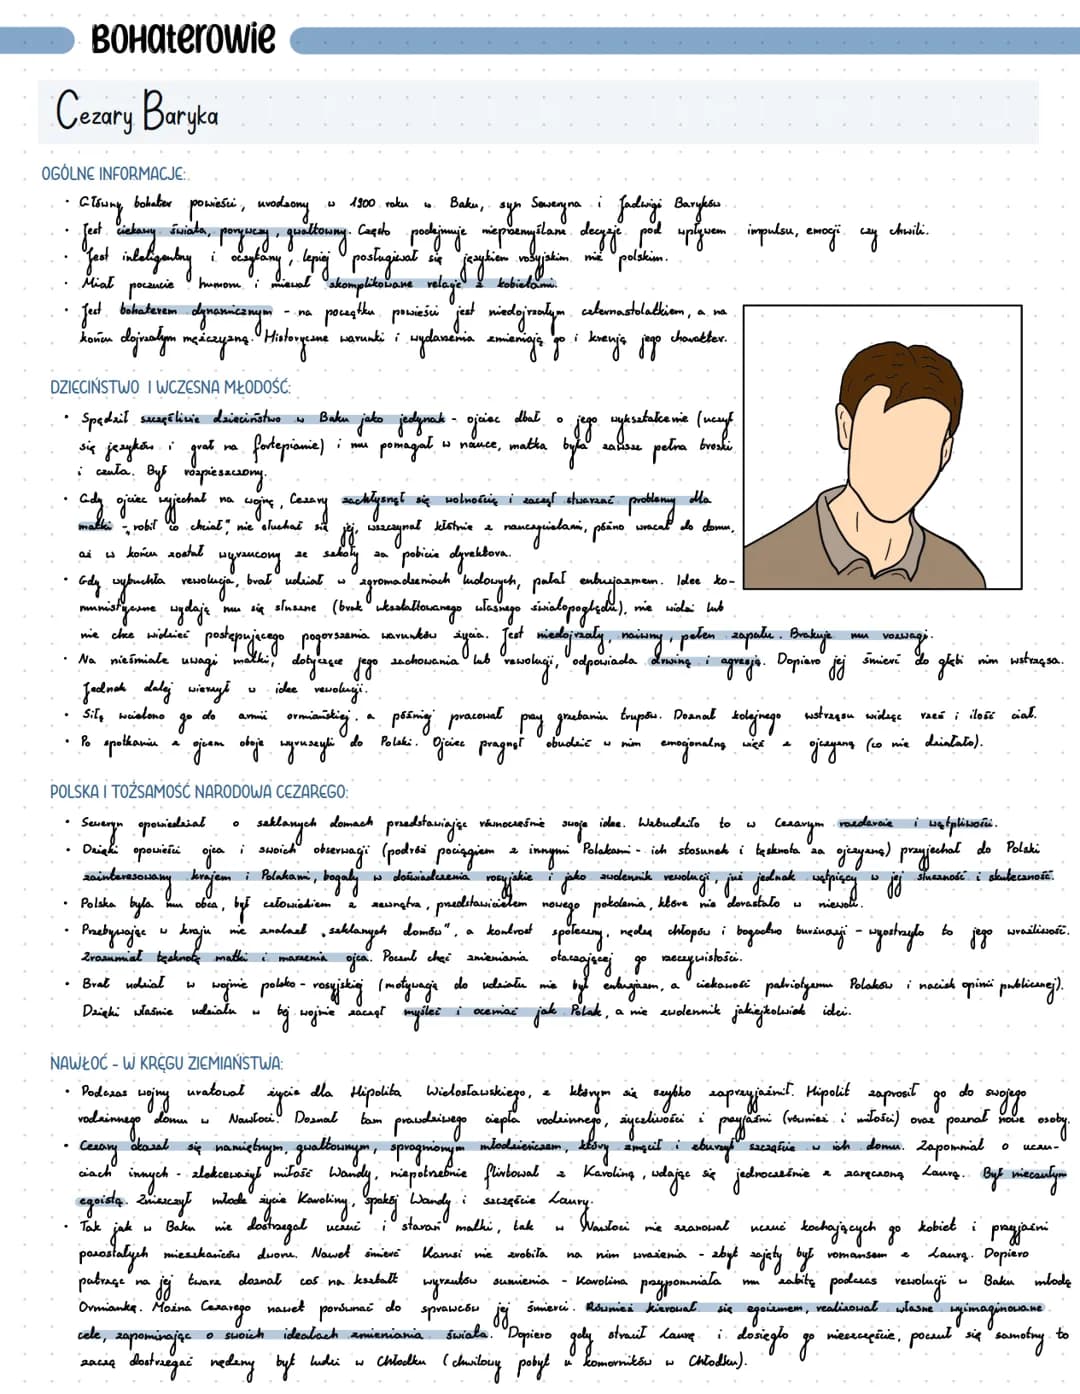 BOHaterowie
Cezary Baryka
OGÓLNE INFORMACJE:
• Główny bohater powieści, urodzony w 1900 roku w Baku, syn Seweryna i Jadwigi Baryków.
• Jest ciekawy świata, porywczy, gwałtowny. Często podejmuje nieprzemyślane decyzje pod wpływem impulsu, emocji czy chwili.
• Jest inteligentny i oczytany, lepiej posługiwał się językiem rosyjskim niż polskim.
• Miał poczucie humoru i miewał skomplikowane relacje z kobietami.
• Jest bohaterem dynamicznym - na początku powieści jest niedojrzałym czternastolatkiem, a na
końcu dojrzałym mężczyzną. Historyczne warunki i wydarzenia zmieniają go i kreują jego charakter.
DZIECIŃSTWO I WCZESNA MŁODOŚĆ:
• Spędził szczęśliwie dzieciństwo w Baku jako jedynak - ojciec dbał o jego wykształcenie (uczył
się języków i grał na fortepianie) i mu pomagał w nauce, matka była zawsze pełna troski
i czuła. Był rozpieszczony.
• Gdy ojciec wyjechał na wojnę, Cezary zachłysnął się wolnością i zaczął stwarzać problemy dla
matki - „robił co chciał", nie słuchał się jej, wszczynał kłótnie z nauczycielami, późno wracał do domu,
aż w końcu został wyrzucony ze szkoły za pobicie dyrektora.
• Gdy wybuchła rewolucja, brał udział w zgromadzeniach ludowych, pałał entuzjazmem. Idee ko-
munistyczne wydają mu się słuszne (brak ukształtowanego własnego światopoglądu), nie widzi lub
nie chce widzieć postępującego pogorszenia warunków życia. Jest niedojrzały, naiwny, pełen zapału. Brakuje mu rozwagi.
• Na nieśmiałe uwagi matki, dotyczące jego zachowania lub rewolucji, odpowiada drwiną i agresją. Dopiero jej śmierć do głębi nim wstrząsa.
Jednak dalej wierzył w idee rewolucji.
• Siłą wcielono go do armii ormiańskiej, a później pracował przy grzebaniu trupów. Doznał kolejnego wstrząsu widząc rzeź i ilość ciał.
• Po spotkaniu z ojcem oboje wyruszyli do Polski. Ojciec pragnął obudzić w nim emocjonalną więź z ojczyzną (co nie działało).
POLSKA I TOŻSAMOŚĆ NARODOWA CEZAREGO:
• Seweryn opowiedział o szklanych domach przedstawiając równocześnie swoje idee. Wzbudziło to w Cezarym rozdarcie i wątpliwości.
• Dzięki opowieści ojca i swoich obserwacji (podróż pociągiem z innymi Polakami - ich stosunek i tęsknota za ojczyzną) przyjechał do Polski
zainteresowany krajem i Polakami, bogaty w doświadczenia rosyjskie i jako zwolennik rewolucji, już jednak wątpiący w jej słuszność i skuteczność.
• Polska była mu obca, był człowiekiem z zewnątrz, przedstawicielem nowego pokolenia, które nie dorastało w niewoli.
• Przebywając w kraju nie znalazł „szklanych domów", a kontrast społeczny, nędzę chłopów i bogactwo burżuazji - wyostrzyło to jego wrażliwość.
Zrozumiał tęsknotę matki i marzenia ojca. Poczuł chęć zmieniania otaczającej go rzeczywistości.
• Brał udział w wojnie polsko-rosyjskiej (motywacją do udziału nie był entuzjazm, a ciekawość patriotyzmu Polaków i nacisk opinii publicznej).
Dzięki właśnie udziału w tej wojnie zaczął myśleć i oceniać jak Polak, a nie zwolennik jakiejkolwiek idei.
NAWŁOĆ - W KRĘGU ZIEMIAŃSTWA:
• Podczas wojny uratował życie dla Hipolita Wielosławskiego, z którym się szybko zaprzyjaźnił. Hipolit zaprosił go do swojego
rodzinnego domu w Nawłoci. Doznał tam prawdziwego ciepła rodzinnego, życzliwości i przyjaźni (również i miłości) oraz poznał nowe osoby.
• Cezary okazał się namiętnym, gwałtownym, spragnionym młodzieńcem, który zmącił i zburzył szczęście w ich domu. Zapomniał o uczu-
ciach innych - zlekceważył miłość Wandy, niepotrzebnie flirtował z Karoliną, wdając się jednocześnie z zaręczoną Laurą. Był nieczułym
egoistą. Zniszczył młode życie Karoliny, spokój Wandy i szczęście Laury.
• Tak jak w Baku nie dostrzegał uczuć i starań matki, tak w Nawłoci nie szanował uczuć kochających go kobiet i przyjaźni
pozostałych mieszkańców dworu. Nawet śmierć Karusi nie zrobiła na nim wrażenia - zbyt zajęty był romansem z Laurą. Dopiero
patrząc na jej twarz doznał coś na kształt wyrzutów sumienia - Karolina przypomniała mu zabitą podczas rewolucji w Baku młodą
Ormiankę. Można Cezarego nawet porównać do sprawców jej śmierci. Również kierował się egoizmem, realizował własne wyimaginowane
cele, zapominając o swoich ideałach zmieniania świata. Dopiero gdy stracił Laurę i dosięgło go nieszczęście, poczuł się samotny to
zaczą dostrzegać nędzny byt ludzi w Chłodku (chwilowy pobyt u komorników w Chłodku).